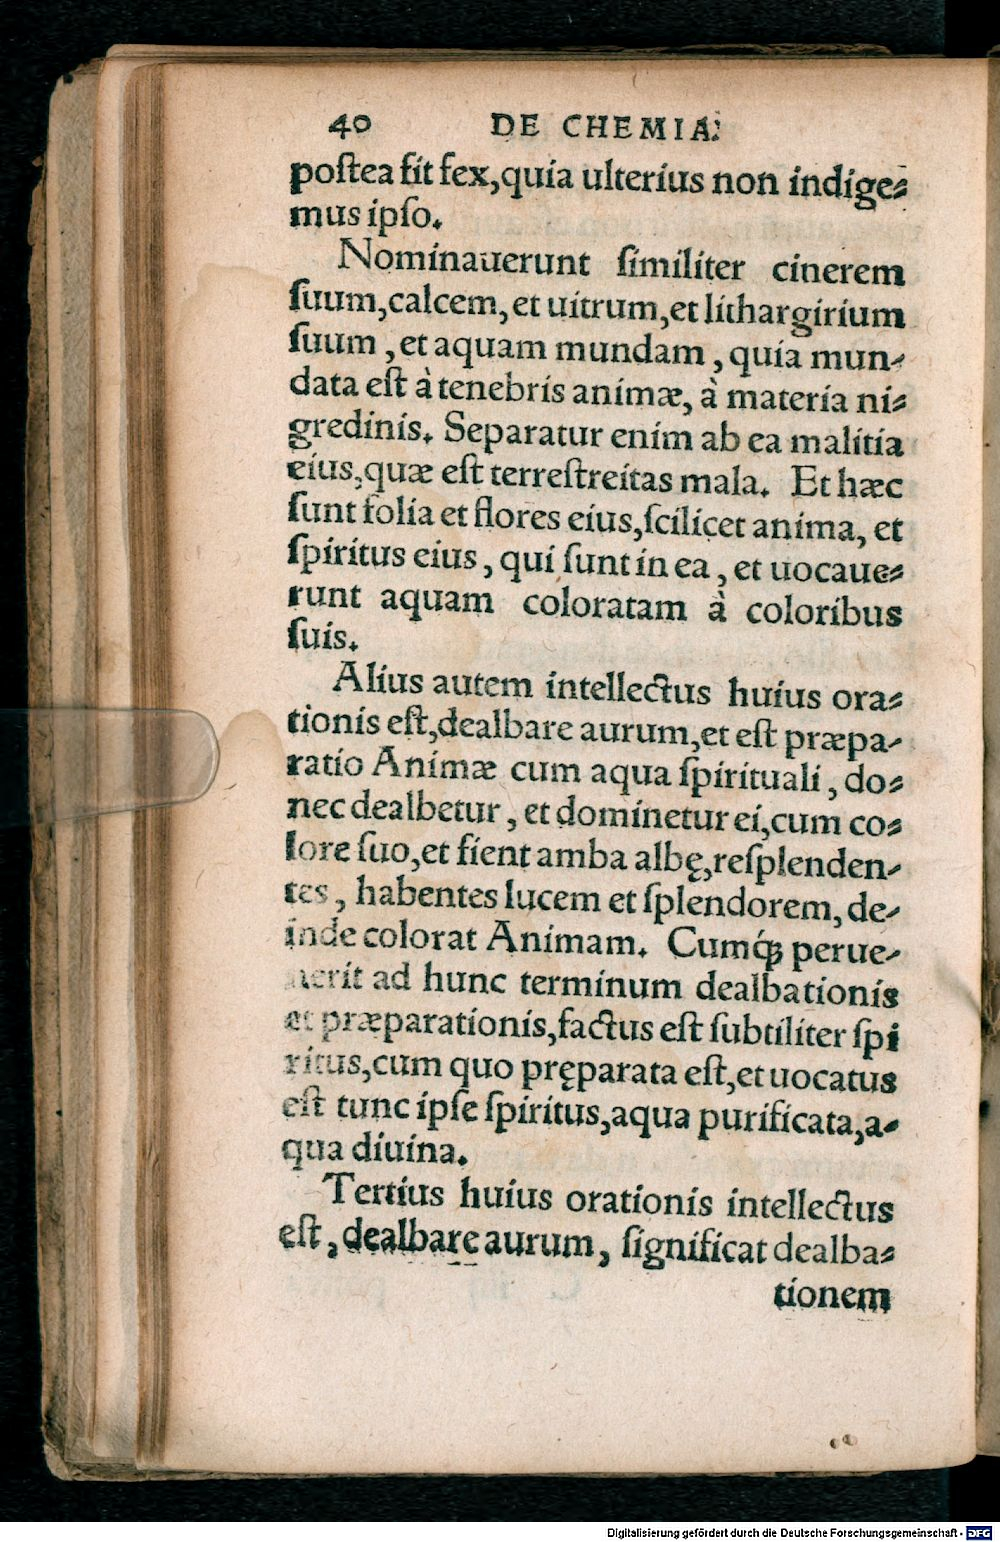 40 DE CHEMIA.
poſtea fit fex,quia ulterius non indige⸗
mus ipſo.
Nominauerunt ſimiliter cinerem
ſuum,calcem, et uitrum,et lithargirium
ſuum , et aquam mundam , quia mun⸗
data eſt à tenebris animæ, à materia ni⸗
gredinis. Separatur enim ab ea malitia
eius,quæ eſt terreſtreitas mala. Et hæc
ſunt folia et flores eius,ſcilicet anima, et
ſpiritus eius , qui ſunt in ea , et uocaue⸗
runt aquam coloratam à coloribus
ſuis.
Alius autem intellectus huius ora⸗
tionis eſt,dealbare aurum,et eſt præpa⸗
ratio Animæ cum aqua ſpirituali , do⸗
nec dealbetur , et dominetur ei,cum co⸗
lore ſuo,et fient amba albę,reſplenden⸗
tes , habentes lucem et ſplendorem, de⸗
inde colorat Animam. Cumq́ꝫ perue⸗
nerit ad hunc terminum dealbationis
et præparationis,factus eſt ſubtiliter ſpi
ritus,cum quo pręparata eſt,et uocatus
eſt tunc ipſe ſpiritus,aqua purificata,a⸗
qua diuina.
Tertius huius orationis intellectus
eſt , dealbare aurum , ſignificat dealba⸗
tionem
Digitalisierung gefördert durch die Deutsche Forschungsgemeinschaft - DFG